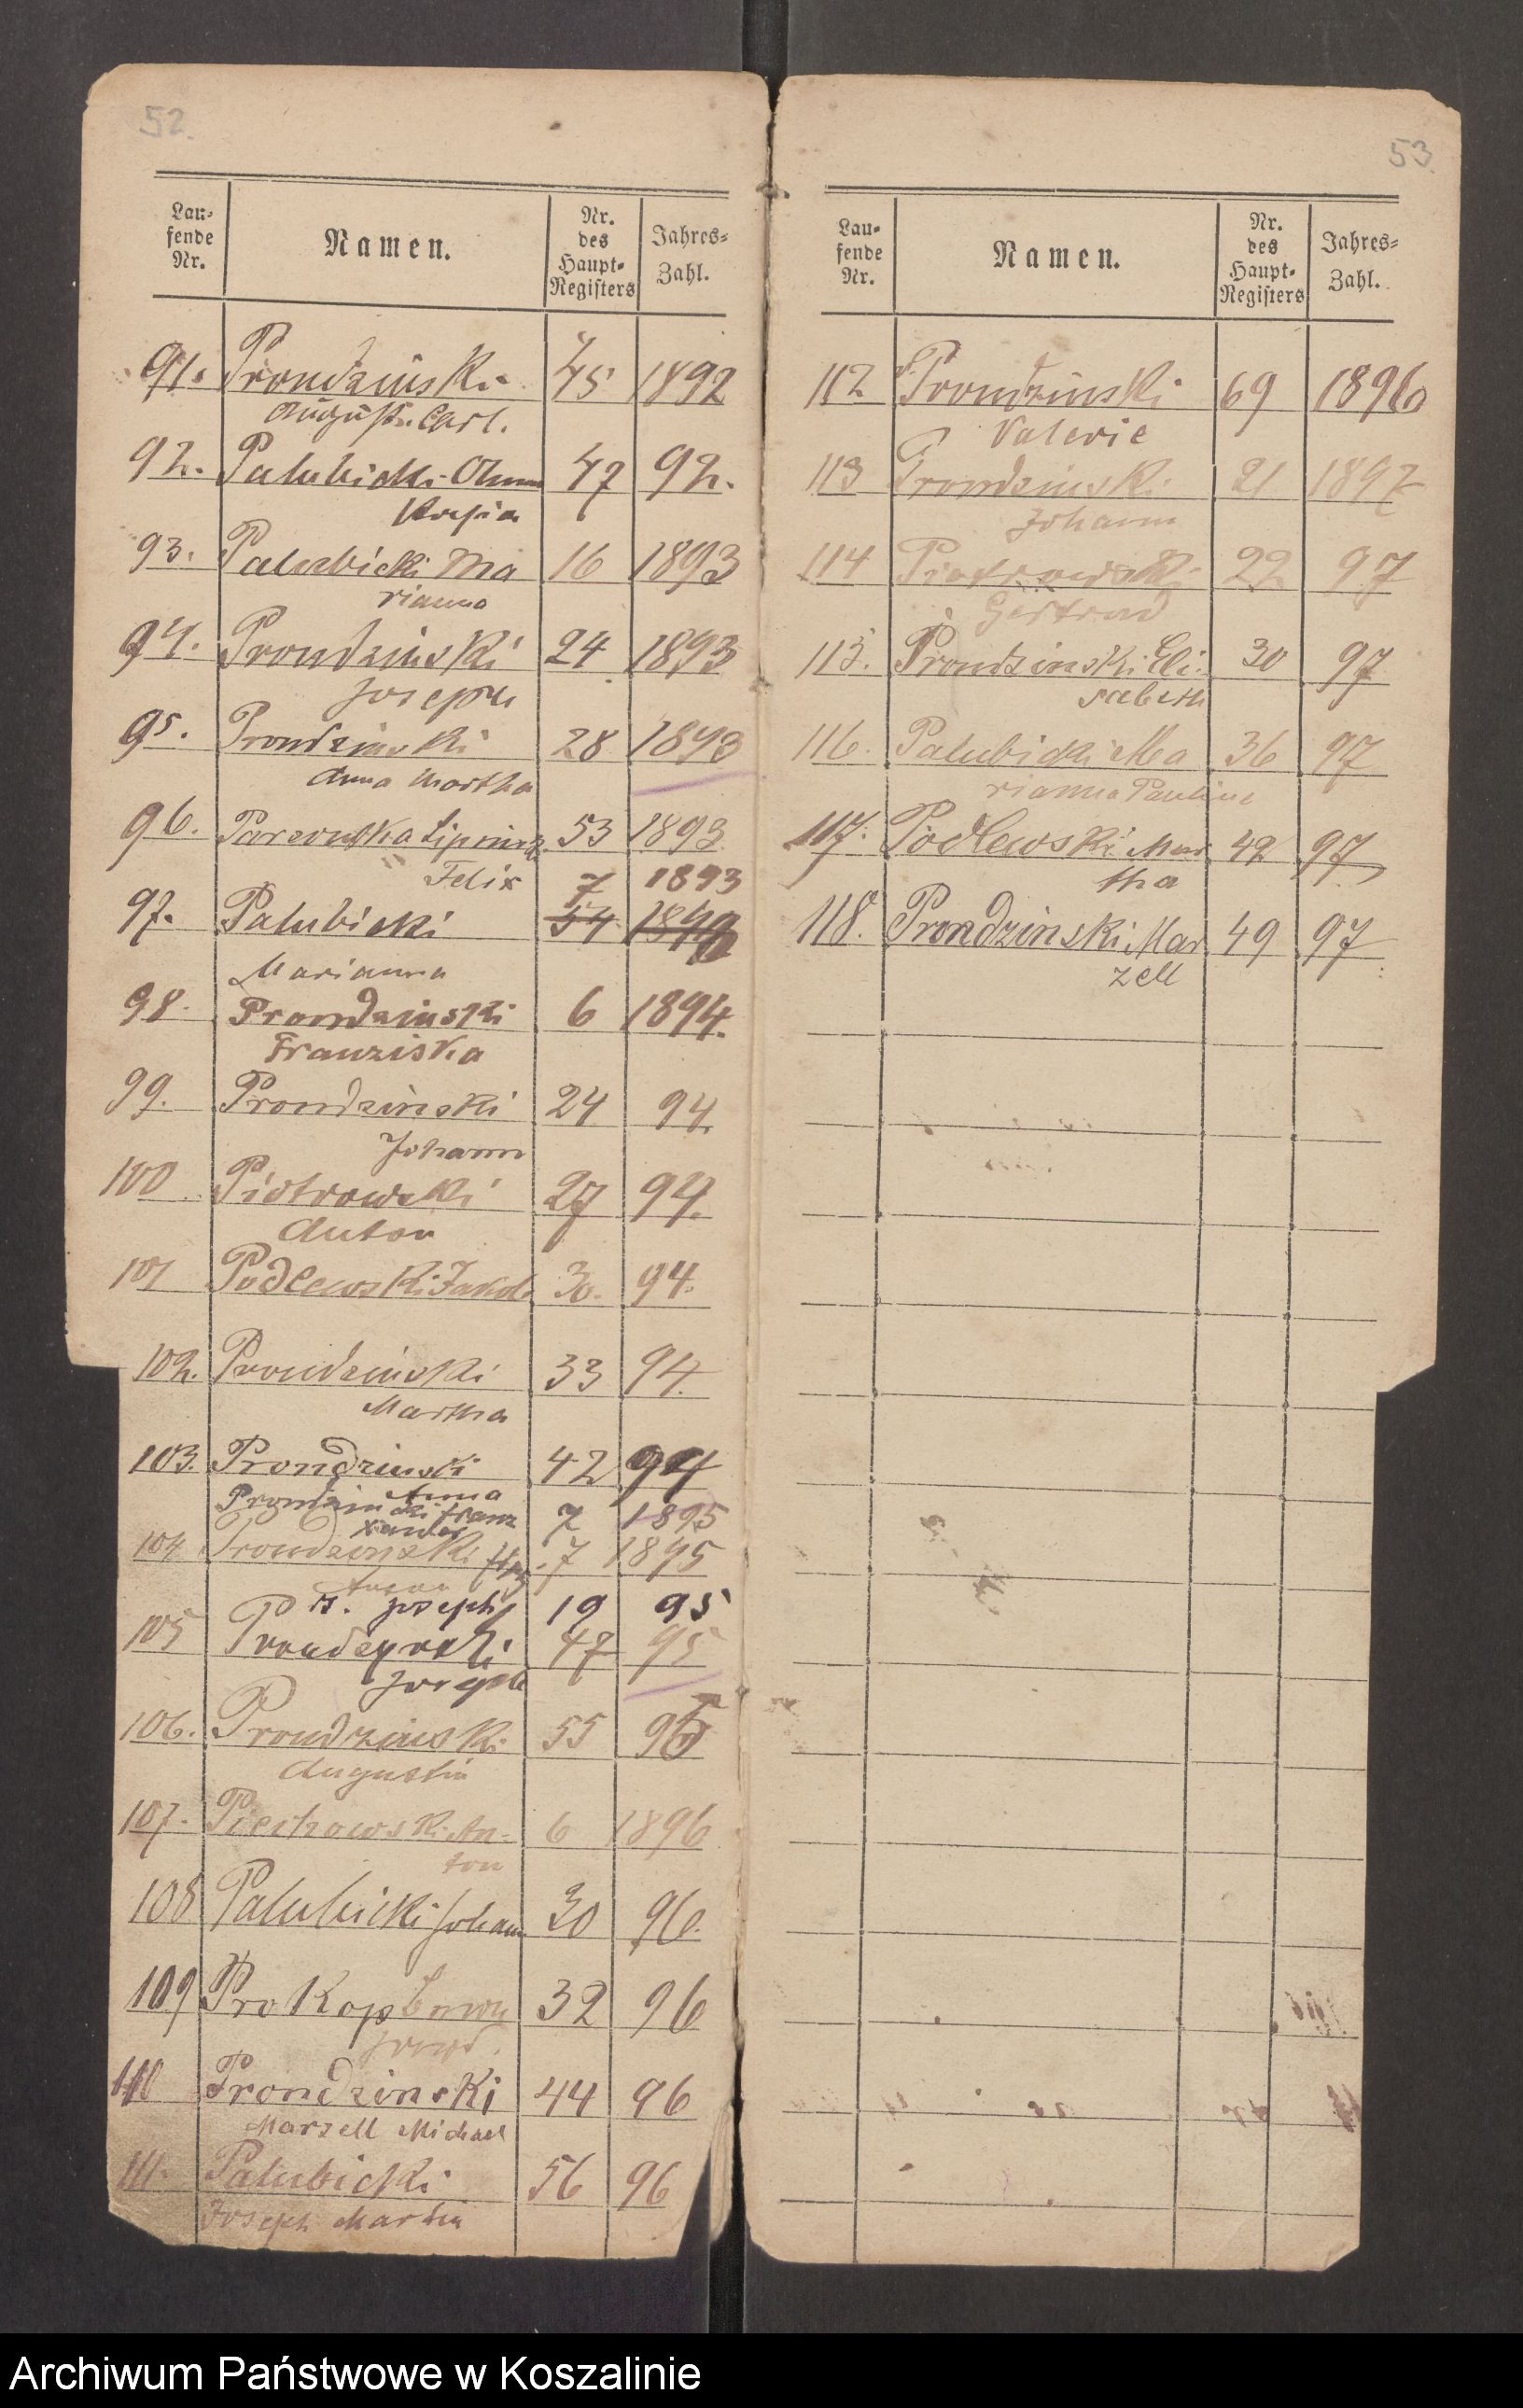 52.
Lau-
fende
Nr.
Namen.
Nr.
des
Haupt-
Registers
Jahres-
Zahl.
91. Prondzinski 45 1892
August Carl.
92. Palubicki 47 92.
93. Palubicki Ma 16 1893
rianna
94. Prondzinski 24 1893
Joseph
95. Prondzinski 28 1893
Anna Martha
96. 53 1893
Felix 7 1893
97. Palubicki 54 1893
Marianna
98. Prondzinski 6 1894.
Franziska
99. Prondzinski 24 94.
Johann
100 Piotrowski 27 94.
Anton
101 Podlewski Jakob 30. 94.
102. Prondzinski 33 94.
Martha
103. Prondzinski 42 94
Anna
Prondzinski Franz 7 1895
Xaver
104 Prondzinski 7 1895
Anton
P. Joseph 19 95
105 Prondzynski 47 95
Joseph
106. Prondzinski 55 95
Augustin
107. Piechowski An- 6 1896
ton
108 Palubicki Johann 30 96.
109 Prokop 32 96
Josef.
110 Prondzinski 44 96
Marzell Michael
111. Palubicki 56 96
Joseph Martin
53
Lau-
fende
Nr.
Namen.
Nr.
des
Haupt-
Registers
Jahres-
Zahl.
112 Prondzinski 69 1896
Valerie
113 Prondzinski 21 1897
Johann
114 Piotrowski 22 97
Gertrud
115. Prondzinski Eli- 30 97
sabeth
116. Palubicki Ma 36 97
rianna Pauline
117. Podlewski Mar 42 97
tha
118. Prondzinski Mar 49 97
zell
Archiwum Państwowe w Koszalinie